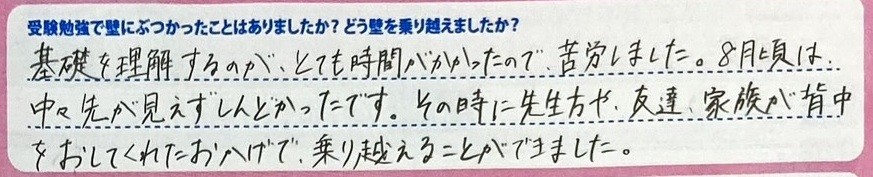 受験勉強で壁にぶつかったことはありましたか？どう壁を乗り越えましたか？
基礎を理解するのが、とても時間がかかったので、苦労しました。8月頃は、
中々先が見えずしんどかったです。その時に先生方や、友達、家族が背中
をおしてくれたおかげで、乗り越えることができました。